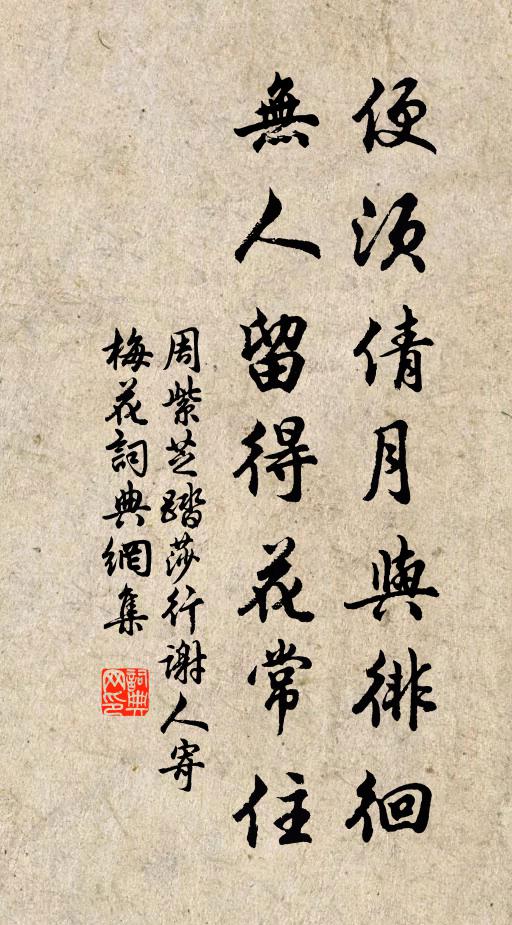 便須倩月與徘徊
無人留得花常住
周紫芝踏莎行謝人寄
梅花詞典網集
詞典
网印